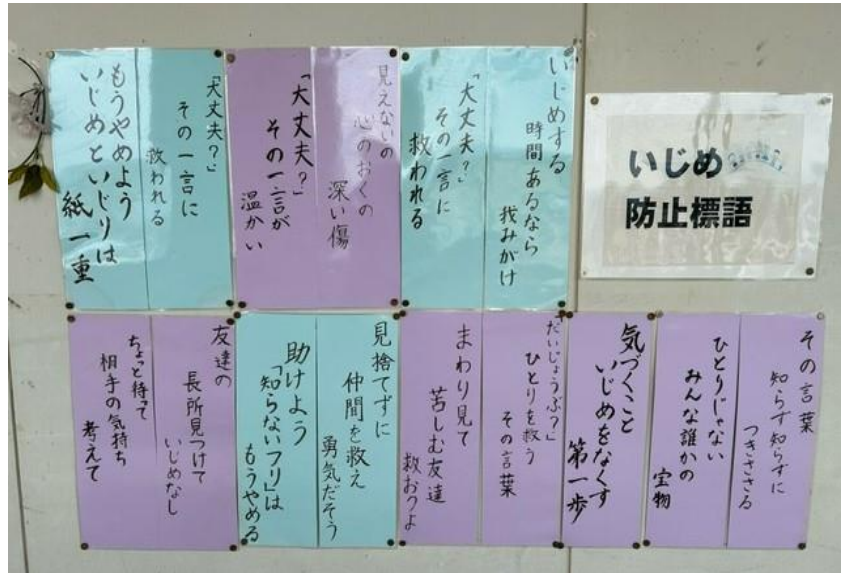 いじめ
防止標語
いじめする
時間あるなら
我みがけ
「大丈夫？」
その一言に
救われる
見えないの
心のおくの
深い傷
「大丈夫？」
その一言が
温かい
「大丈夫？」
その一言に
救われる
もうやめよう
いじめといじりは
紙一重
その言葉
知らず知らずに
つきささる
ひとりじゃない
みんな誰かの
宝物
気づくこと
いじめをなくす
第一歩
だいじょうぶ？」
ひとりを救う
その言葉
まわり見て
苦しむ友達
救おうよ
見捨てずに
仲間を救え
勇気だそう
助けよう
「知らないフリ」は
もうやめる
友達の
長所見つけて
いじめなし
ちょっと待って
相手の気持ち
考えて